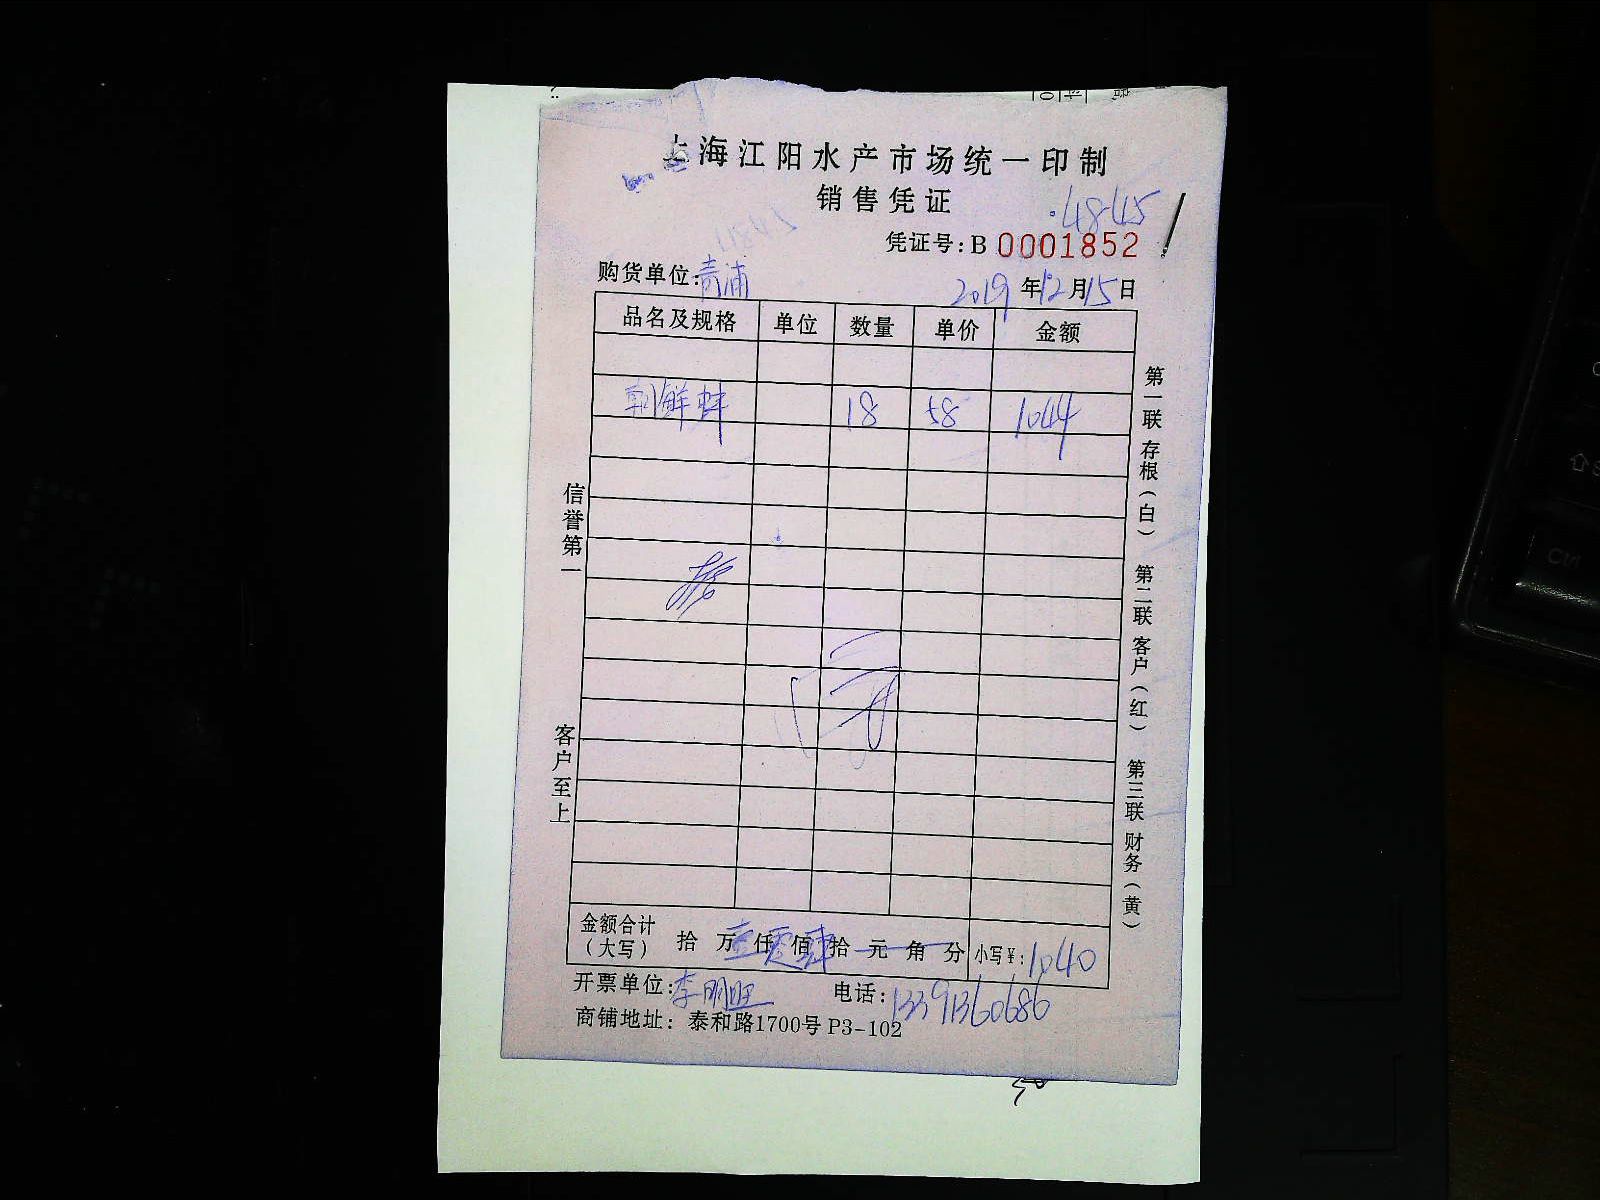 上海江阳水产市场统一印制
销售凭证
4845
凭证号:B 0001852
购货单位:青浦
2019年12月15日
品名及规格 单位 数量 单价 金额
朝鲜蚌 18 58 1044
信誉第一
客户至上
第一联 存根(白) 第二联 客户(红) 第三联 财务(黄)
金额合计(大写) 拾 万 壹仟 零佰 肆拾 元 角 分 小写¥:1040
开票单位:李明旺 电话:13391360686
商铺地址: 泰和路1700号 P3-102